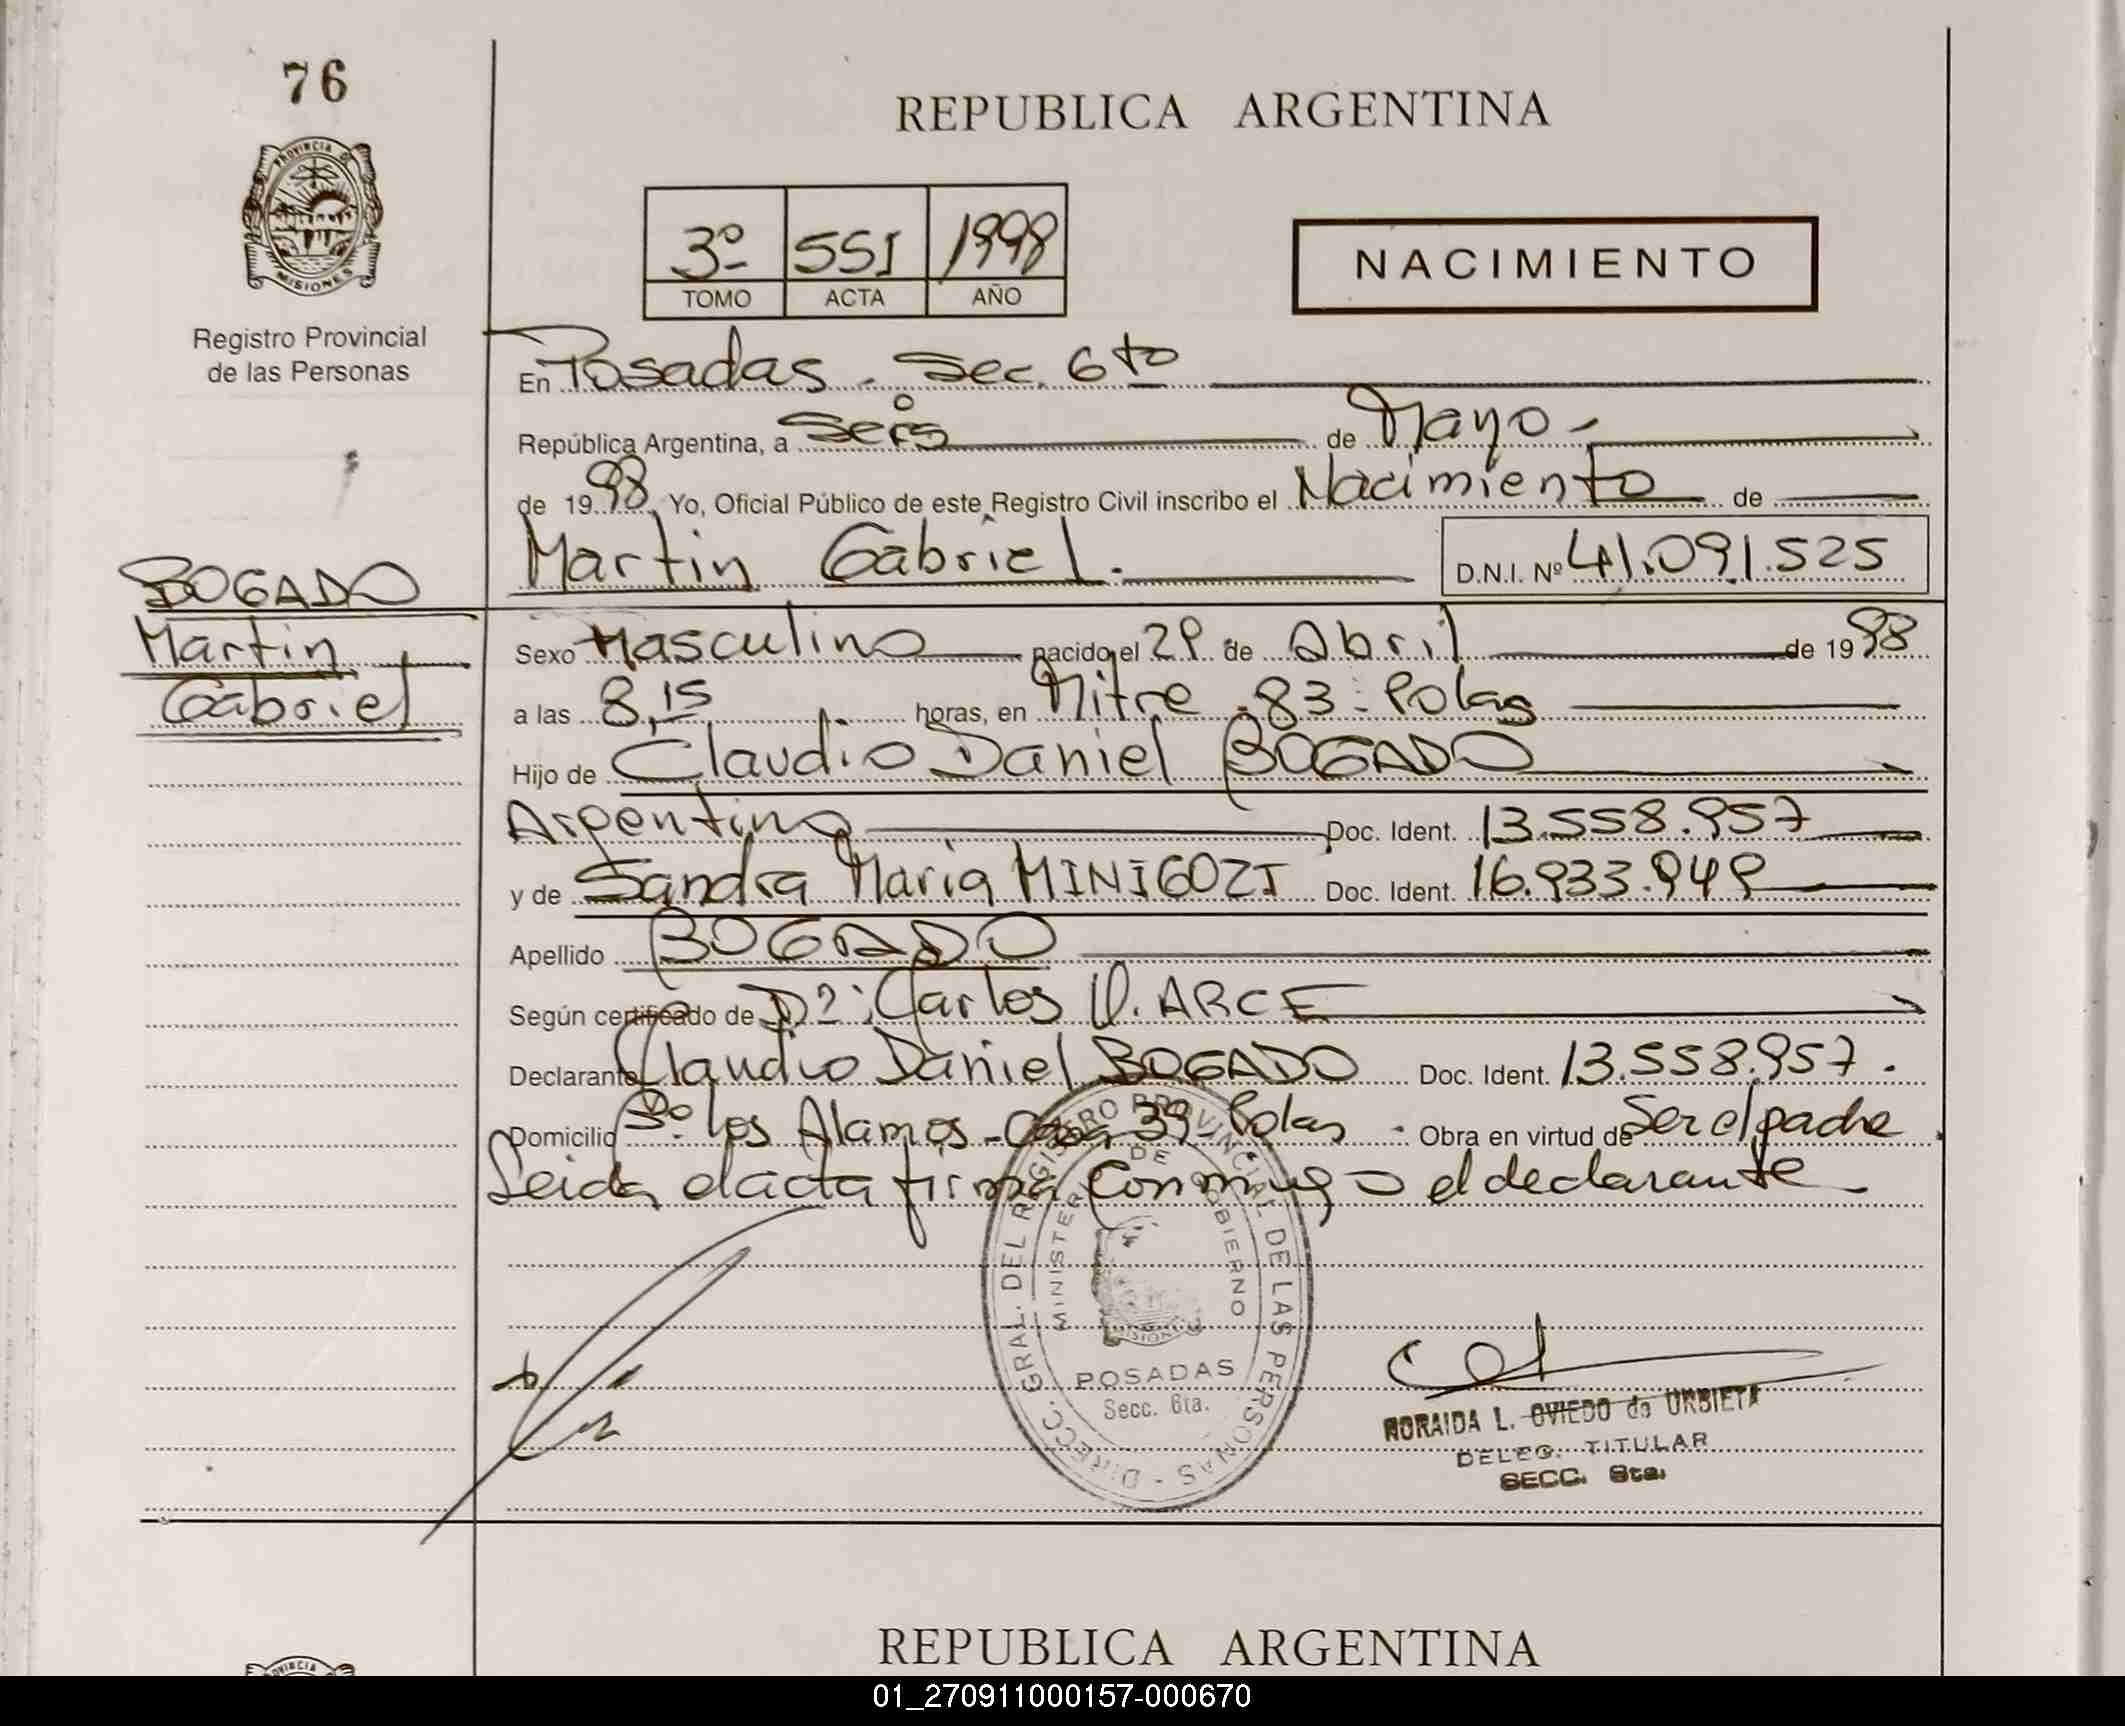 76
PROVINCIA DE
MISIONES
Registro Provincial
de las Personas
REPUBLICA ARGENTINA
3º 551 1998
TOMO ACTA AÑO
NACIMIENTO
En Posadas. Sec. 6to
República Argentina, a Seis de Mayo-
de 1998 Yo, Oficial Público de este Registro Civil inscribo el Nacimiento de
Martin Gabriel. D.N.I. Nº 41.091.525
BOGADO
Martin
Gabriel
Sexo Masculino nacido el 29 de Abril de 1998
a las 8,15 horas, en Mitre 83- Pdas
Hijo de Claudio Daniel BOGADO
Argentino Doc. Ident. 13.558.957
y de Sandra Maria MINIGOZI Doc. Ident. 16.933.949
Apellido BOGADO
Según certificado de Dr: Carlos D. ARCE
Declarante Claudio Daniel BOGADO Doc. Ident. 13.558.957.
Domicilio Bº los Alamos - Casa 39- Pdas. Obra en virtud de Ser el padre
Leida el acta firma Conmigo el declarante
DIRECC. GRAL. DEL REGISTRO PROVINCIAL DE LAS PERSONAS -
MINISTERIO DE GOBIERNO
MISIONES
POSADAS
Secc. 6ta.
NORAIDA L. OVIEDO de URBIETA
DELEG. TITULAR
SECC. 6ta.
PROVINCIA
REPUBLICA ARGENTINA
01_270911000157-000670